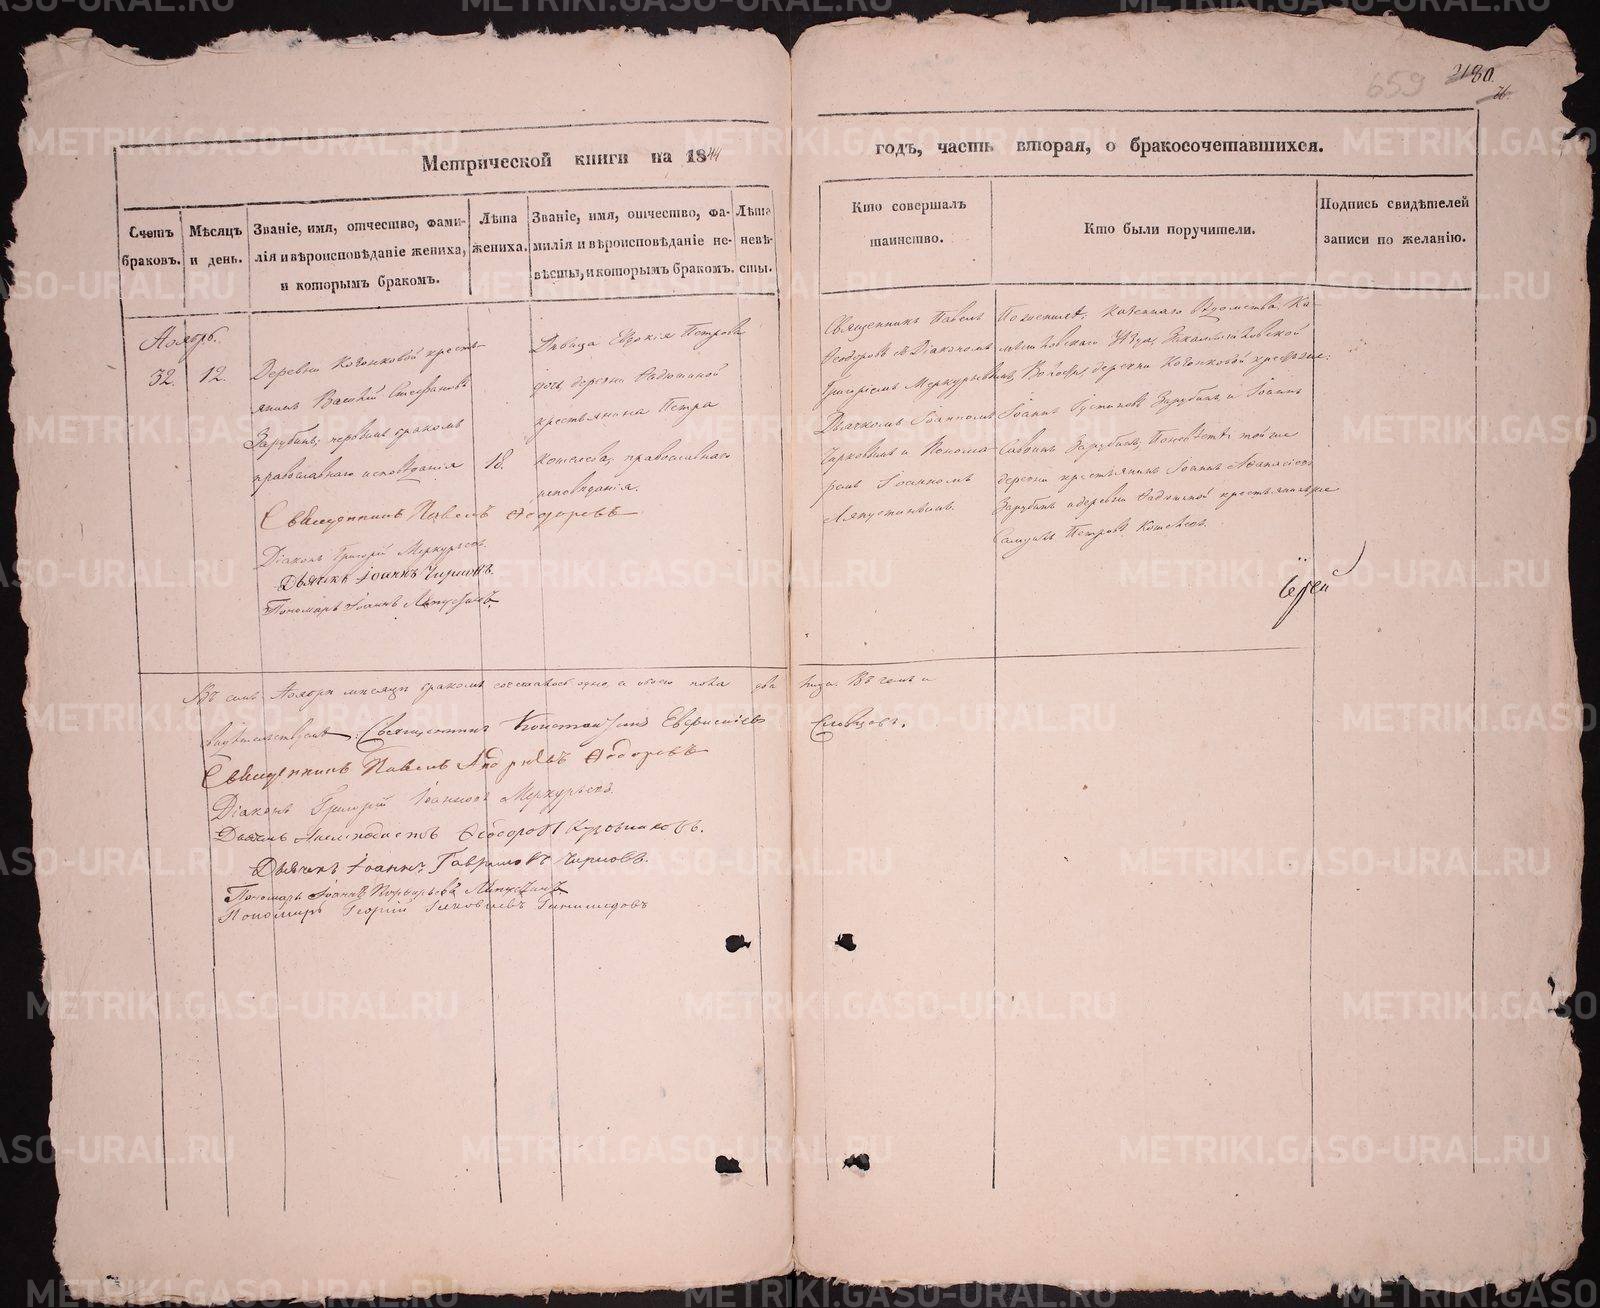 659
180.
Метрической книги на 1844
годъ, часть вторая, о бракосочетавшихся.
Счетъ браковъ.
Мѣсяцъ и день.
Званіе, имя, отчество, фами-
лія и вѣроисповѣданіе жениха,
и которымъ бракомъ.
Лѣта
жениха.
Званіе, имя, отчество, фа-
милія и вѣроисповѣданіе не-
вѣсты, и которымъ бракомъ.
Лѣта
невѣ-
сты.
Кто совершалъ
таинство.
Кто были поручители.
Подпись свидѣтелей
записи по желанію.
Ноябрь.
32.
12.
Деревни Кочонковой кресть-
янинъ Василій Стефановъ
Зарубинъ, первымъ бракомъ
православнаго исповѣданія
18.
Дѣвица Евдокія Петрова
дочь деревни
крестьянина Петра
Кошелева, православнаго
исповѣданія.
Священникъ Павелъ
Ѳеодоровъ съ Діакономъ
Григоріемъ Меркурьевымъ,
Дьячкомъ Іоанномъ
Чирковымъ и Понома-
ремъ Іоанномъ
Ляпустинымъ.
По женихѣ: Казеннаго Вѣдомства, Ка-
мышловскаго Уѣзда, Закамышловской
Волости, деревни Кочонковой крестьяне:
Іоаннъ Іустиновъ Зарубинъ, и Іоаннъ
Саввинъ Зарубинъ; По невѣстѣ: той же
деревни крестьянинъ Іоаннъ Аѳанасіевъ
Зарубинъ и деревни крестьянинъ же
Петровъ Кошелевъ.
Священникъ Павелъ Ѳеодоровъ
Діаконъ Григорій Меркурьевъ.
Дьячекъ Іоаннъ Чирковъ.
Пономарь Іоаннъ Ляпустинъ
Въ семъ Ноябрѣ мѣсяцѣ бракомъ сочеталось одно, а обоего пола два лица. Въ чемъ и
свидѣтельствуютъ: Священникъ Константинъ Словцовъ.
Священникъ Павелъ Андреевъ Ѳеодоровъ
Діаконъ Григорій Іоанновъ Меркурьевъ.
Дьячекъ Ѳеодоровъ
Дьячекъ Іоаннъ Гавриловъ Чирковъ.
Пономарь Іоаннъ Порфирьевъ Ляпустинъ
Пономарь Георгій Іяковлевъ
METRIKI.GASO-URAL.RU